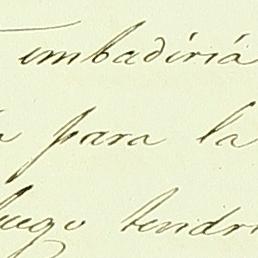 imbadiriá
para la
luego tendr